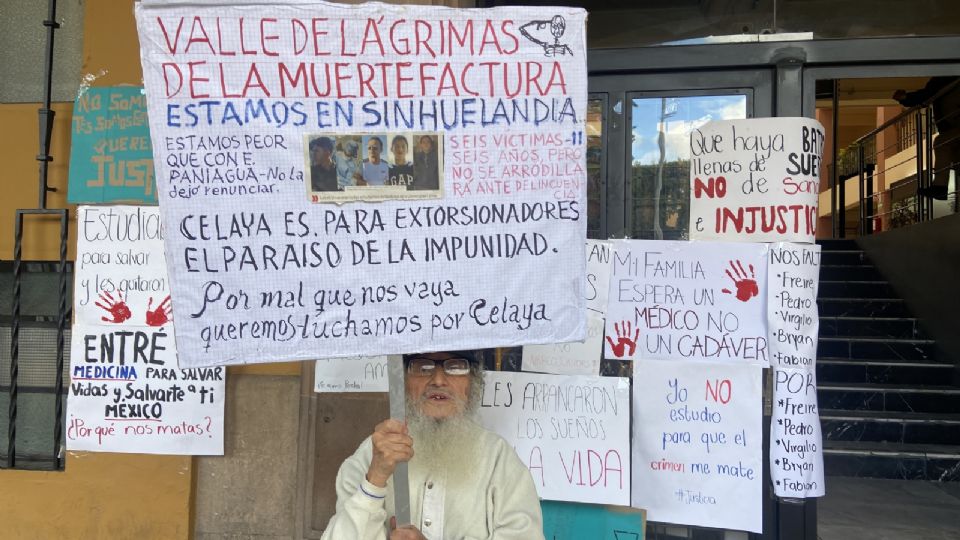 VALLE DE LÁGRIMAS
DE LA MUERTEFACTURA
ESTAMOS EN SINHUELANDIA
ESTAMOS PEOR
QUE CON E.
PANIAGUA-No LA
dejó renunciar.
SEIS VÍCTIMAS-11
SEIS AÑOS, PERO
NO SE ARRODILLA
RA ANTE DELINCUEN
CIA
CELAYA ES. PARA EXTORSIONADORES
EL PARAISO DE LA IMPUNIDAD.
Por mal que nos vaya
queremos-luchamos por Celaya
No Somos
JUSTI
Estudia
para salvar
y les quitaron
ENTRÉ
MEDICINA PARA SALVAR
Vidas y Salvarte a ti
MÉXICO
¿Por qué nos matas?
Que haya BAT
llenas de SUE
NO de San
e INJUSTIC
Mi FAMILIA
ESPERA UN
MÉDICO NO
UN CADÁVER
NOS FALT
-Freire
-Pedro
-Virgilio
-Bryan
-Fabian
POR
*Freire
*Pedro
*Virgilio
*Bryan
*Fabian
LES ARRANCARON
LOS SUEÑOS
LA VIDA
Yo NO
estudio
para que el
crimen me mate
#Justicia